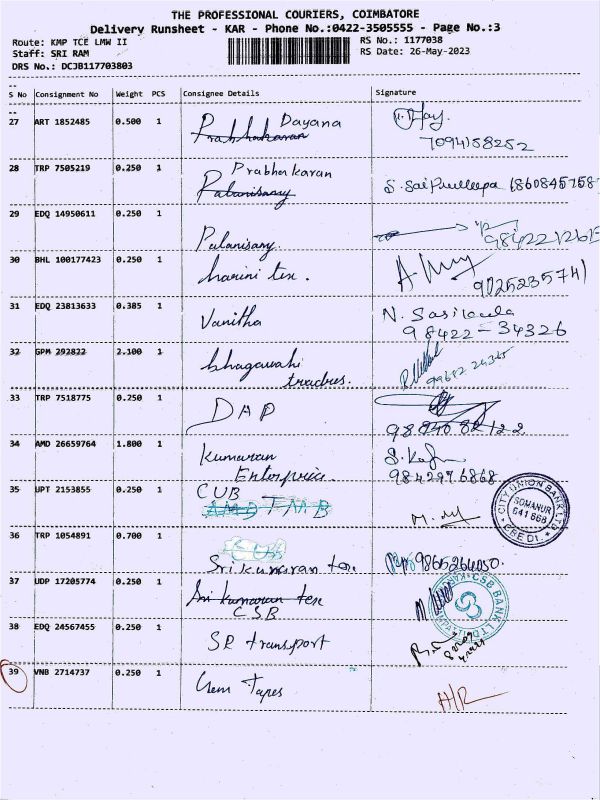 THE PROFESSIONAL COURIERS, COIMBATORE
Delivery Runsheet - KAR - Phone No.:0422-3505555 - Page No.:3
Route: KMP TCE LMW II RS No.: I177038
Staff: SRI RAM RS Date: 26-May-2023
DRS No.: DCJB117703803
S No Consignment No Weight PCS Consignee Details Signature
27 ART 1852485 0.500 1 Dayana
Prabhakaran
7094158252
28 TRP 7505219 0.250 1 Prabhakaran
Palanisamy
29 EDQ 14950611 0.250 1 Palanisamy.
30 BHL 100177423 0.250 1 harini tex.
9025235741
31 EDQ 23813633 0.385 1 Vanitha N. Sasikala
98422-34326
32 GPM 292822 2.100 1 bhagawathi
traders.
33 TRP 7518775 0.250 1 DAP
34 AMD 26659764 1.800 1 Kumaran
Enterprises
9842976868
35 UPT 2153855 0.250 1 CUB
AMB TMB
CITY UNION BANK LTD
SOMANUR
641 668
CREDI.
36 TRP 1054891 0.700 1
Srikumaran tex 9865264050.
37 UDP 17205774 0.250 1 Sri kumaran tex
CSB
CSB BANK LTD
38 EDQ 24567455 0.250 1 SR transport
39 VNB 2714737 0.250 1 Gem Tapes